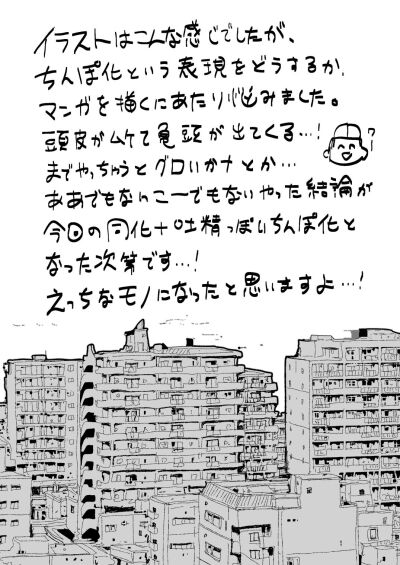 イラストはこんな感じでしたが、
ちんぽ化という表現をどうするか、
マンガを描くにあたり悩みました。
頭皮がムケて亀頭が出てくる…!
までやっちゃうとグロいかナとか…
ああでもないこーでもないやった結論が
今回の同化+吐精っぽいちんぽ化と
なった次第です…!
えっちなモノになったと思いますよ…!
ワー